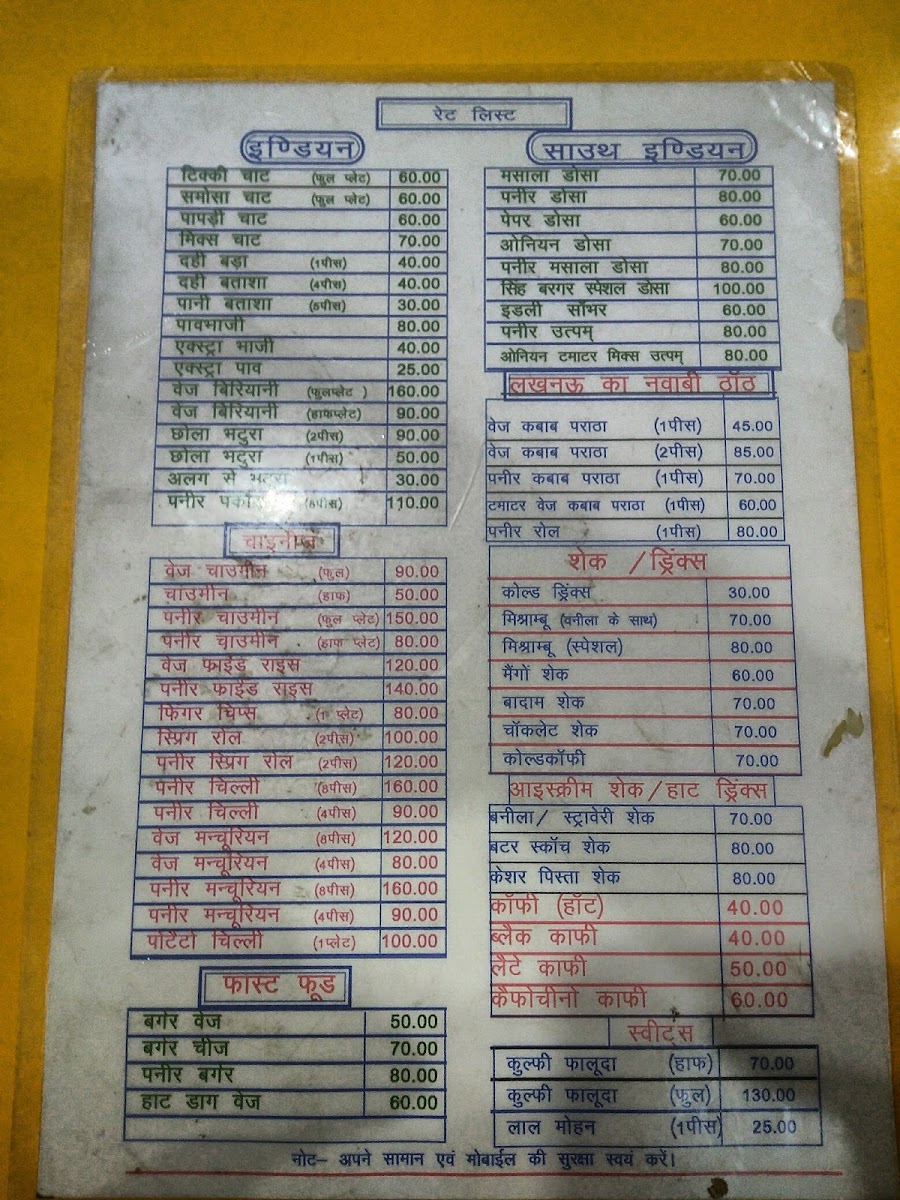 रेट लिस्ट
इण्डियन
टिक्की चाट (फुल प्लेट) 60.00
समोसा चाट (फुल प्लेट) 60.00
पापड़ी चाट 60.00
मिक्स चाट 70.00
दही बड़ा (1पीस) 40.00
दही बताशा (4पीस) 40.00
पानी बताशा (5पीस) 30.00
पावभाजी 80.00
एक्स्ट्रा भाजी 40.00
एक्स्ट्रा पाव 25.00
वेज बिरियानी (फुलप्लेट ) 160.00
वेज बिरियानी (हाफप्लेट) 90.00
छोला भटुरा (2पीस) 90.00
छोला भटुरा (1पीस) 50.00
अलग से भटुरा 30.00
पनीर 110.00
चाइनीज
वेज चाउमीन (फुल) 90.00
चाउमीन (हाफ) 50.00
पनीर चाउमीन (फुल प्लेट) 150.00
पनीर चाउमीन (हाफ प्लेट) 80.00
वेज फाईड राइस 120.00
पनीर फाईड राइस 140.00
फिंगर चिप्स (1 प्लेट) 80.00
स्प्रिग रोल (2पीस) 100.00
पनीर स्प्रिग रोल (2पीस) 120.00
पनीर चिल्ली (8पीस) 160.00
पनीर चिल्ली (4पीस) 90.00
वेज मन्चूरियन (8पीस) 120.00
वेज मन्चूरियन (4पीस) 80.00
पनीर मन्चूरियन (8पीस) 160.00
पनीर मन्चूरियन (4पीस) 90.00
पोटैटो चिल्ली (1प्लेट) 100.00
फास्ट फूड
बर्गर वेज 50.00
बर्गर चीज 70.00
पनीर बर्गर 80.00
हाट डाग वेज 60.00
साउथ इण्डियन
मसाला डोसा 70.00
पनीर डोसा 80.00
पेपर डोसा 60.00
ओनियन डोसा 70.00
पनीर मसाला डोसा 80.00
सिंह बरगर स्पेशल डोसा 100.00
इडली सॉंभर 60.00
पनीर उत्पम् 80.00
ओनियन टमाटर मिक्स उत्पम् 80.00
लखनऊ का नवाबी ठॉठ
वेज कबाब पराठा (1पीस) 45.00
वेज कबाब पराठा (2पीस) 85.00
पनीर कबाब पराठा (1पीस) 70.00
टमाटर वेज कबाब पराठा (1पीस) 60.00
पनीर रोल (1पीस) 80.00
शेक /ड्रिंक्स
कोल्ड ड्रिंक्स 30.00
मिश्राम्बू (वनीला के साथ) 70.00
मिश्राम्बू (स्पेशल) 80.00
मैंगों शेक 60.00
बादाम शेक 70.00
चॉकलेट शेक 70.00
कोल्डकॉफी 70.00
आइस्क्रीम शेक/हाट ड्रिंक्स
बनीला/ स्ट्रावेरी शेक 70.00
बटर स्कॉच शेक 80.00
केशर पिस्ता शेक 80.00
कॉफी (हॉट) 40.00
ब्लैक काफी 40.00
लैटे काफी 50.00
कैफोचीनो काफी 60.00
स्वीट्स
कुल्फी फालूदा (हाफ) 70.00
कुल्फी फालूदा (फुल) 130.00
लाल मोहन (1पीस) 25.00
नोट– अपने सामान एवं मोबाईल की सुरक्षा स्वयं करें।